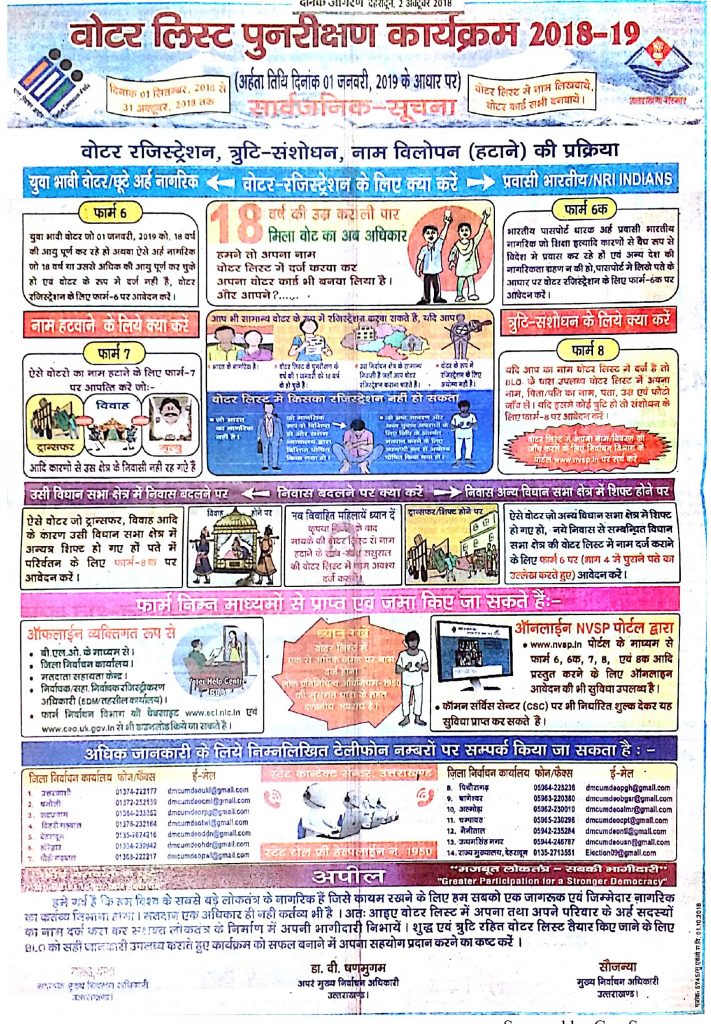 दैनिक जागरण देहरादून, 2 अक्टूबर 2018
वोटर लिस्ट पुनरीक्षण कार्यक्रम 2018-19
(अर्हता तिथि दिनांक 01 जनवरी, 2019 के आधार पर)
सार्वजनिक-सूचना
दिनांक 01 सितम्बर, 2018 से
31 अक्टूबर, 2018 तक
वोटर लिस्ट में नाम लिखवायें,
वोटर कार्ड सभी बनवायें।
उत्तराखण्ड सरकार
वोटर रजिस्ट्रेशन, त्रुटि-संशोधन, नाम विलोपन (हटाने) की प्रक्रिया
युवा भावी वोटर/छूटे अर्ह नागरिक
वोटर-रजिस्ट्रेशन के लिए क्या करें
प्रवासी भारतीय/NRI INDIANS
फार्म 6
युवा भावी वोटर जो 01 जनवरी, 2019 को, 18 वर्ष
की आयु पूर्ण कर रहे हो अथवा ऐसे अर्ह नागरिक
जो 18 वर्ष या उससे अधिक की आयु पूर्ण कर चुके
हो एवं वोटर के रूप में दर्ज नही है, वोटर
रजिस्ट्रेशन के लिए फार्म-6 पर आवेदन करें।
18 वर्ष की उम्र करली पार
मिला वोट का अब अधिकार
हमने तो अपना नाम
वोटर लिस्ट में दर्ज करवा कर
अपना वोटर कार्ड भी बनवा लिया है।
और आपने?......
फार्म 6क
भारतीय पासपोर्ट धारक अर्ह प्रवासी भारतीय
नागरिक जो शिक्षा इत्यादि कारणों से वैध रूप से
विदेश मे प्रवास कर रहे हों एवं अन्य देश की
नागरिकता ग्रहण न की हो,पासपोर्ट में लिखे पते के
आधार पर वोटर रजिस्ट्रेशन के लिए फार्म-6क पर
आवेदन करें।
नाम हटवाने के लिये क्या करें
फार्म 7
ऐसे वोटरो का नाम हटाने के लिए फार्म-7
पर आपत्ति करें जो:-
विवाह
ट्रान्सफर
मृत्यु
आदि कारणों से उस क्षेत्र के निवासी नही रह गये हैं
आप भी सामान्य वोटर के रूप में रजिस्ट्रेशन करवा सकते हैं, यदि आप
भारत का नागरिक है।
वोटर लिस्ट में किसका रजिस्ट्रेशन नहीं हो सकता
जो भारत
का नागरिक
नहीं है।
त्रुटि-संशोधन के लिये क्या करें
फार्म 8
यदि आप का नाम वोटर लिस्ट मे दर्ज है तो
BLO के पास उपलब्ध वोटर लिस्ट में अपना
नाम, पिता/पति का नाम, पता, उम्र एवं फोटो
जाँच ले। यदि इसमे कोई त्रुटि हो तो संशोधन के
लिए फार्म-8 पर आवेदन करें।
उसी विधान सभा क्षेत्र में निवास बदलने पर
निवास बदलने पर क्या करें
निवास अन्य विधान सभा क्षेत्र में शिफ्ट होने पर
ऐसे वोटर जो ट्रान्सफर, विवाह आदि
के कारण उसी विधान सभा क्षेत्र में
अन्यत्र शिफ्ट हो गए हों पते में
परिर्वतन के लिए फार्म-8क पर
आवेदन करें।
विवाह होने पर
नव विवाहित महिलायें ध्यान दें
कृपया विवाह के बाद
मायके की वोटर लिस्ट से नाम
हटाने के साथ-साथ ससुराल
की वोटर लिस्ट में नाम अवश्य
दर्ज करायें।
ट्रान्सफर/शिफ्ट होने पर
ऐसे वोटर जो अन्य विधान सभा क्षेत्र में शिफ्ट
हो गए हो, नये निवास से सम्बन्धित विधान
सभा क्षेत्र की वोटर लिस्ट मे नाम दर्ज कराने
के लिए फार्म 6 पर (भाग 4 मे पुराने पते का
उल्लेख करते हुए) आवेदन करें।
फार्म निम्न माध्यमों से प्राप्त एवं जमा किए जा सकते हैं:-
ऑफलाईन व्यक्तिगत रूप से
• बी.एल.ओ. के माध्यम से।
• जिला निर्वाचन कार्यालय।
• मतदाता सहायता केन्द्र।
• निर्वाचक/सहा. निर्वाचक रजिस्ट्रीकरण
अधिकारी (SDM/तहसील कार्यालय)।
• फार्म निर्वाचन विभाग की वेबसाइट www.eci.nic.in एवं
www.ceo.uk.gov.in से भी डाउनलोड किये जा सकते है।
Voter Help Centre
ध्यान रखें
वोटर लिस्ट में
एक से अधिक जगह पर नाम
दर्ज होना
लोक प्रतिनिधित्व अधिनियम-1950
की सुसंगत धारा के तहत
दण्डनीय अपराध है।
ऑनलाईन NVSP पोर्टल द्वारा
• www.nvsp.in पोर्टल के माध्यम से
फार्म 6, 6क, 7, 8, एवं 8क आदि
प्रस्तुत करने के लिए ऑनलाइन
आवेदन की भी सुविधा उपलब्ध है।
• कॉमन सर्विस सेन्टर (CSC) पर भी निर्धारित शुल्क देकर यह
सुविधा प्राप्त कर सकते है।
अधिक जानकारी के लिये निम्नलिखित टेलीफोन नम्बरों पर सम्पर्क किया जा सकता है :-
जिला निर्वाचन कार्यालय फोन/फैक्स ई-मेल
1. उत्तरकाशी 01374-222177
2. चमोली 01372-252139
3. रूद्रप्रयाग
4. टिहरी गढ़वाल
5. देहरादून
6. हरिद्वार
7. पौड़ी गढ़वाल
स्टेट कान्टेक्ट सेन्टर, उत्तराखण्ड
स्टेट टोल फ्री हेल्पलाईन नं. 1950
जिला निर्वाचन कार्यालय फोन/फैक्स ई-मेल
8. पिथौरागढ़ 05964-225236 dmcumdeopgh@gmail.com
9. बागेश्वर 05963-220380 dmcumdeobgsr@gmail.com
10. अल्मोड़ा 05962-230010 dmcumdeoalmr@gmail.com
11. चम्पावत 05965-230296 dmcumdeocpt@gmail.com
12. नैनीताल 05942-235284 dmcumdeontl@gmail.com
13. उधमसिंह नगर 05944-246787 dmcumdeousn@gmail.com
14. राज्य मुख्यालय, देहरादून 0135-2713551 Election09@gmail.com
अपील
"मजबूत लोकतंत्र - सबकी भागीदारी"
"Greater Participation for a Stronger Democracy"
हमे गर्व है कि हम विश्व के सबसे बड़े लोकतंत्र के नागरिक हैं जिसे कायम रखने के लिए हम सबको एक जागरूक एवं जिम्मेदार नागरिक
का कर्तव्य निभाना होगा। मतदान एक अधिकार ही नही कर्तव्य भी है। अतः आइए वोटर लिस्ट में अपना तथा अपने परिवार के अर्ह सदस्यों
का नाम दर्ज करा कर सशक्त लोकतंत्र के निर्माण में अपनी भागीदारी निभायें। शुद्ध एवं त्रुटि रहित वोटर लिस्ट तैयार किए जाने के लिए
BLO को सही जानकारी उपलब्ध कराते हुए कार्यक्रम को सफल बनाने में अपना सहयोग प्रदान करने का कष्ट करें।
उत्तराखण्ड।
डा. वी. षणमुगम
अपर मुख्य निर्वाचन अधिकारी
उत्तराखण्ड।
सौजन्या
मुख्य निर्वाचन अधिकारी
उत्तराखण्ड।